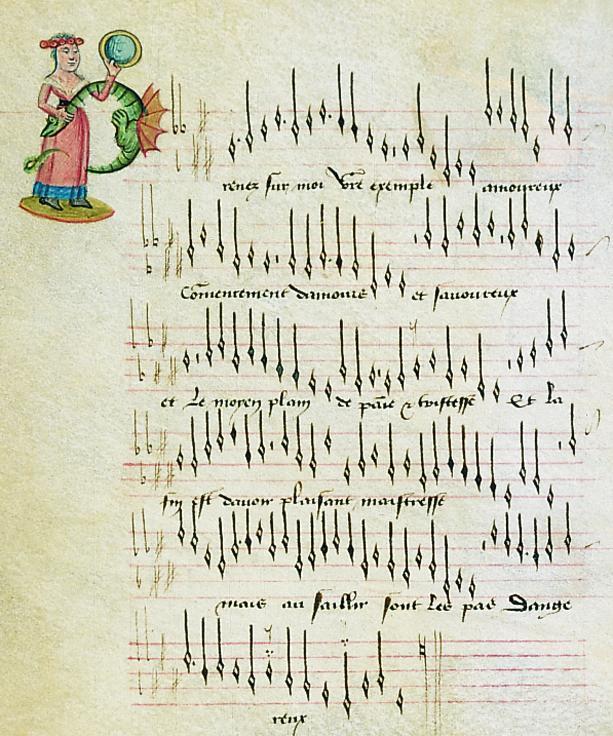 renez sur moi vr̃e exemple amoureux
Com̃encement damours et sauoureux
et Le moyen plain de pai̅e & tristesse Et la
fin est dauoir plaisant maistresse
mais au saillir sont les pas Dange
reux